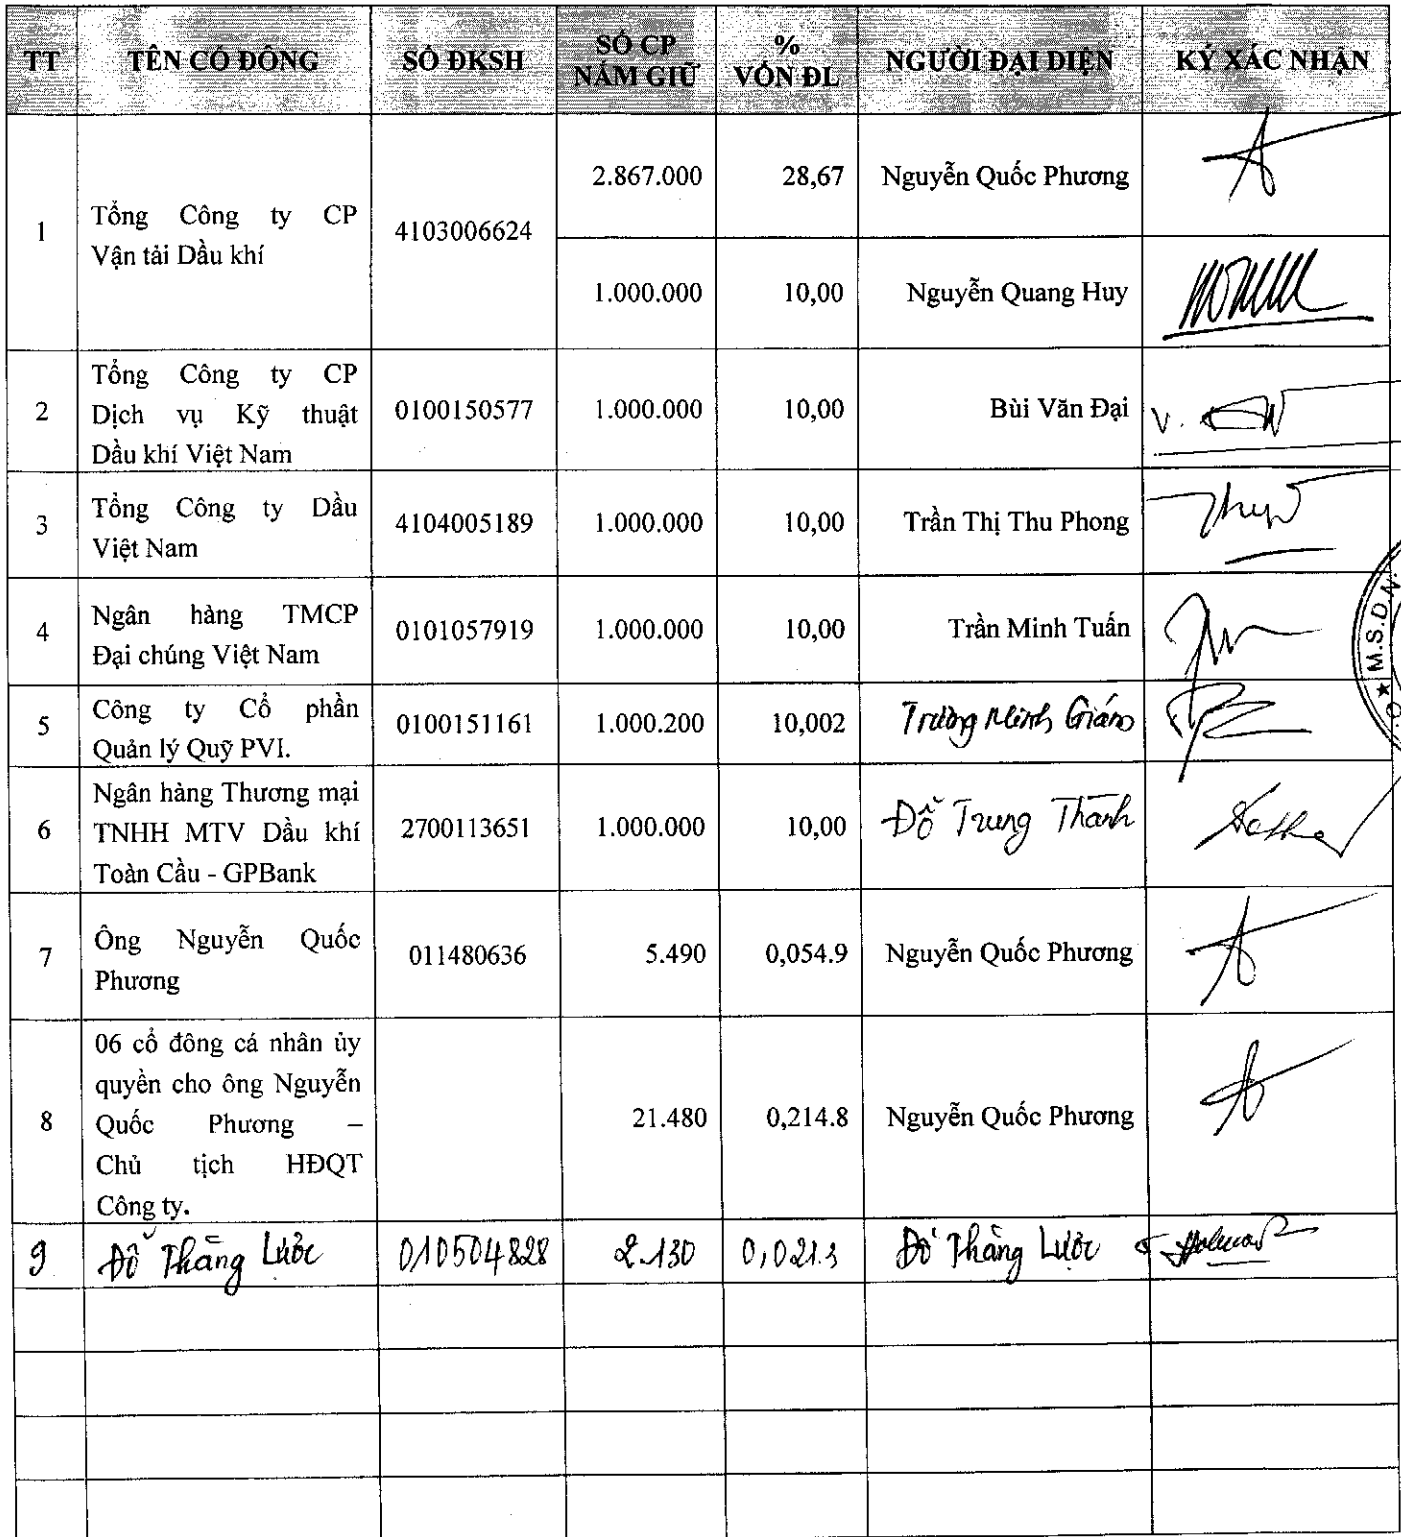 TT TÊN CỔ ĐÔNG SỐ ĐKSH SỐ CP NẮM GIỮ % VỐN ĐL NGƯỜI ĐẠI DIỆN KÝ XÁC NHẬN
1 Tổng Công ty CP
Vận tải Dầu khí
4103006624
2.867.000 28,67 Nguyễn Quốc Phương
1.000.000 10,00 Nguyễn Quang Huy
2 Tổng Công ty CP
Dịch vụ Kỹ thuật
Dầu khí Việt Nam
0100150577 1.000.000 10,00 Bùi Văn Đại
3 Tổng Công ty Dầu
Việt Nam
4104005189 1.000.000 10,00 Trần Thị Thu Phong
4 Ngân hàng TMCP
Đại chúng Việt Nam
0101057919 1.000.000 10,00 Trần Minh Tuấn
M.S.D.N
5 Công ty Cổ phần
Quản lý Quỹ PVI.
0100151161 1.000.200 10,002
6 Ngân hàng Thương mại
TNHH MTV Dầu khí
Toàn Cầu - GPBank
2700113651 1.000.000 10,00 Đỗ Trung Thành
7 Ông Nguyễn Quốc
Phương
011480636 5.490 0,054.9 Nguyễn Quốc Phương
8 06 cổ đông cá nhân ủy
quyền cho ông Nguyễn
Quốc Phương –
Chủ tịch HĐQT
Công ty.
21.480 0,214.8 Nguyễn Quốc Phương
9 Đỗ Thăng 010504828 2.130 0,021.3 Đỗ Thăng